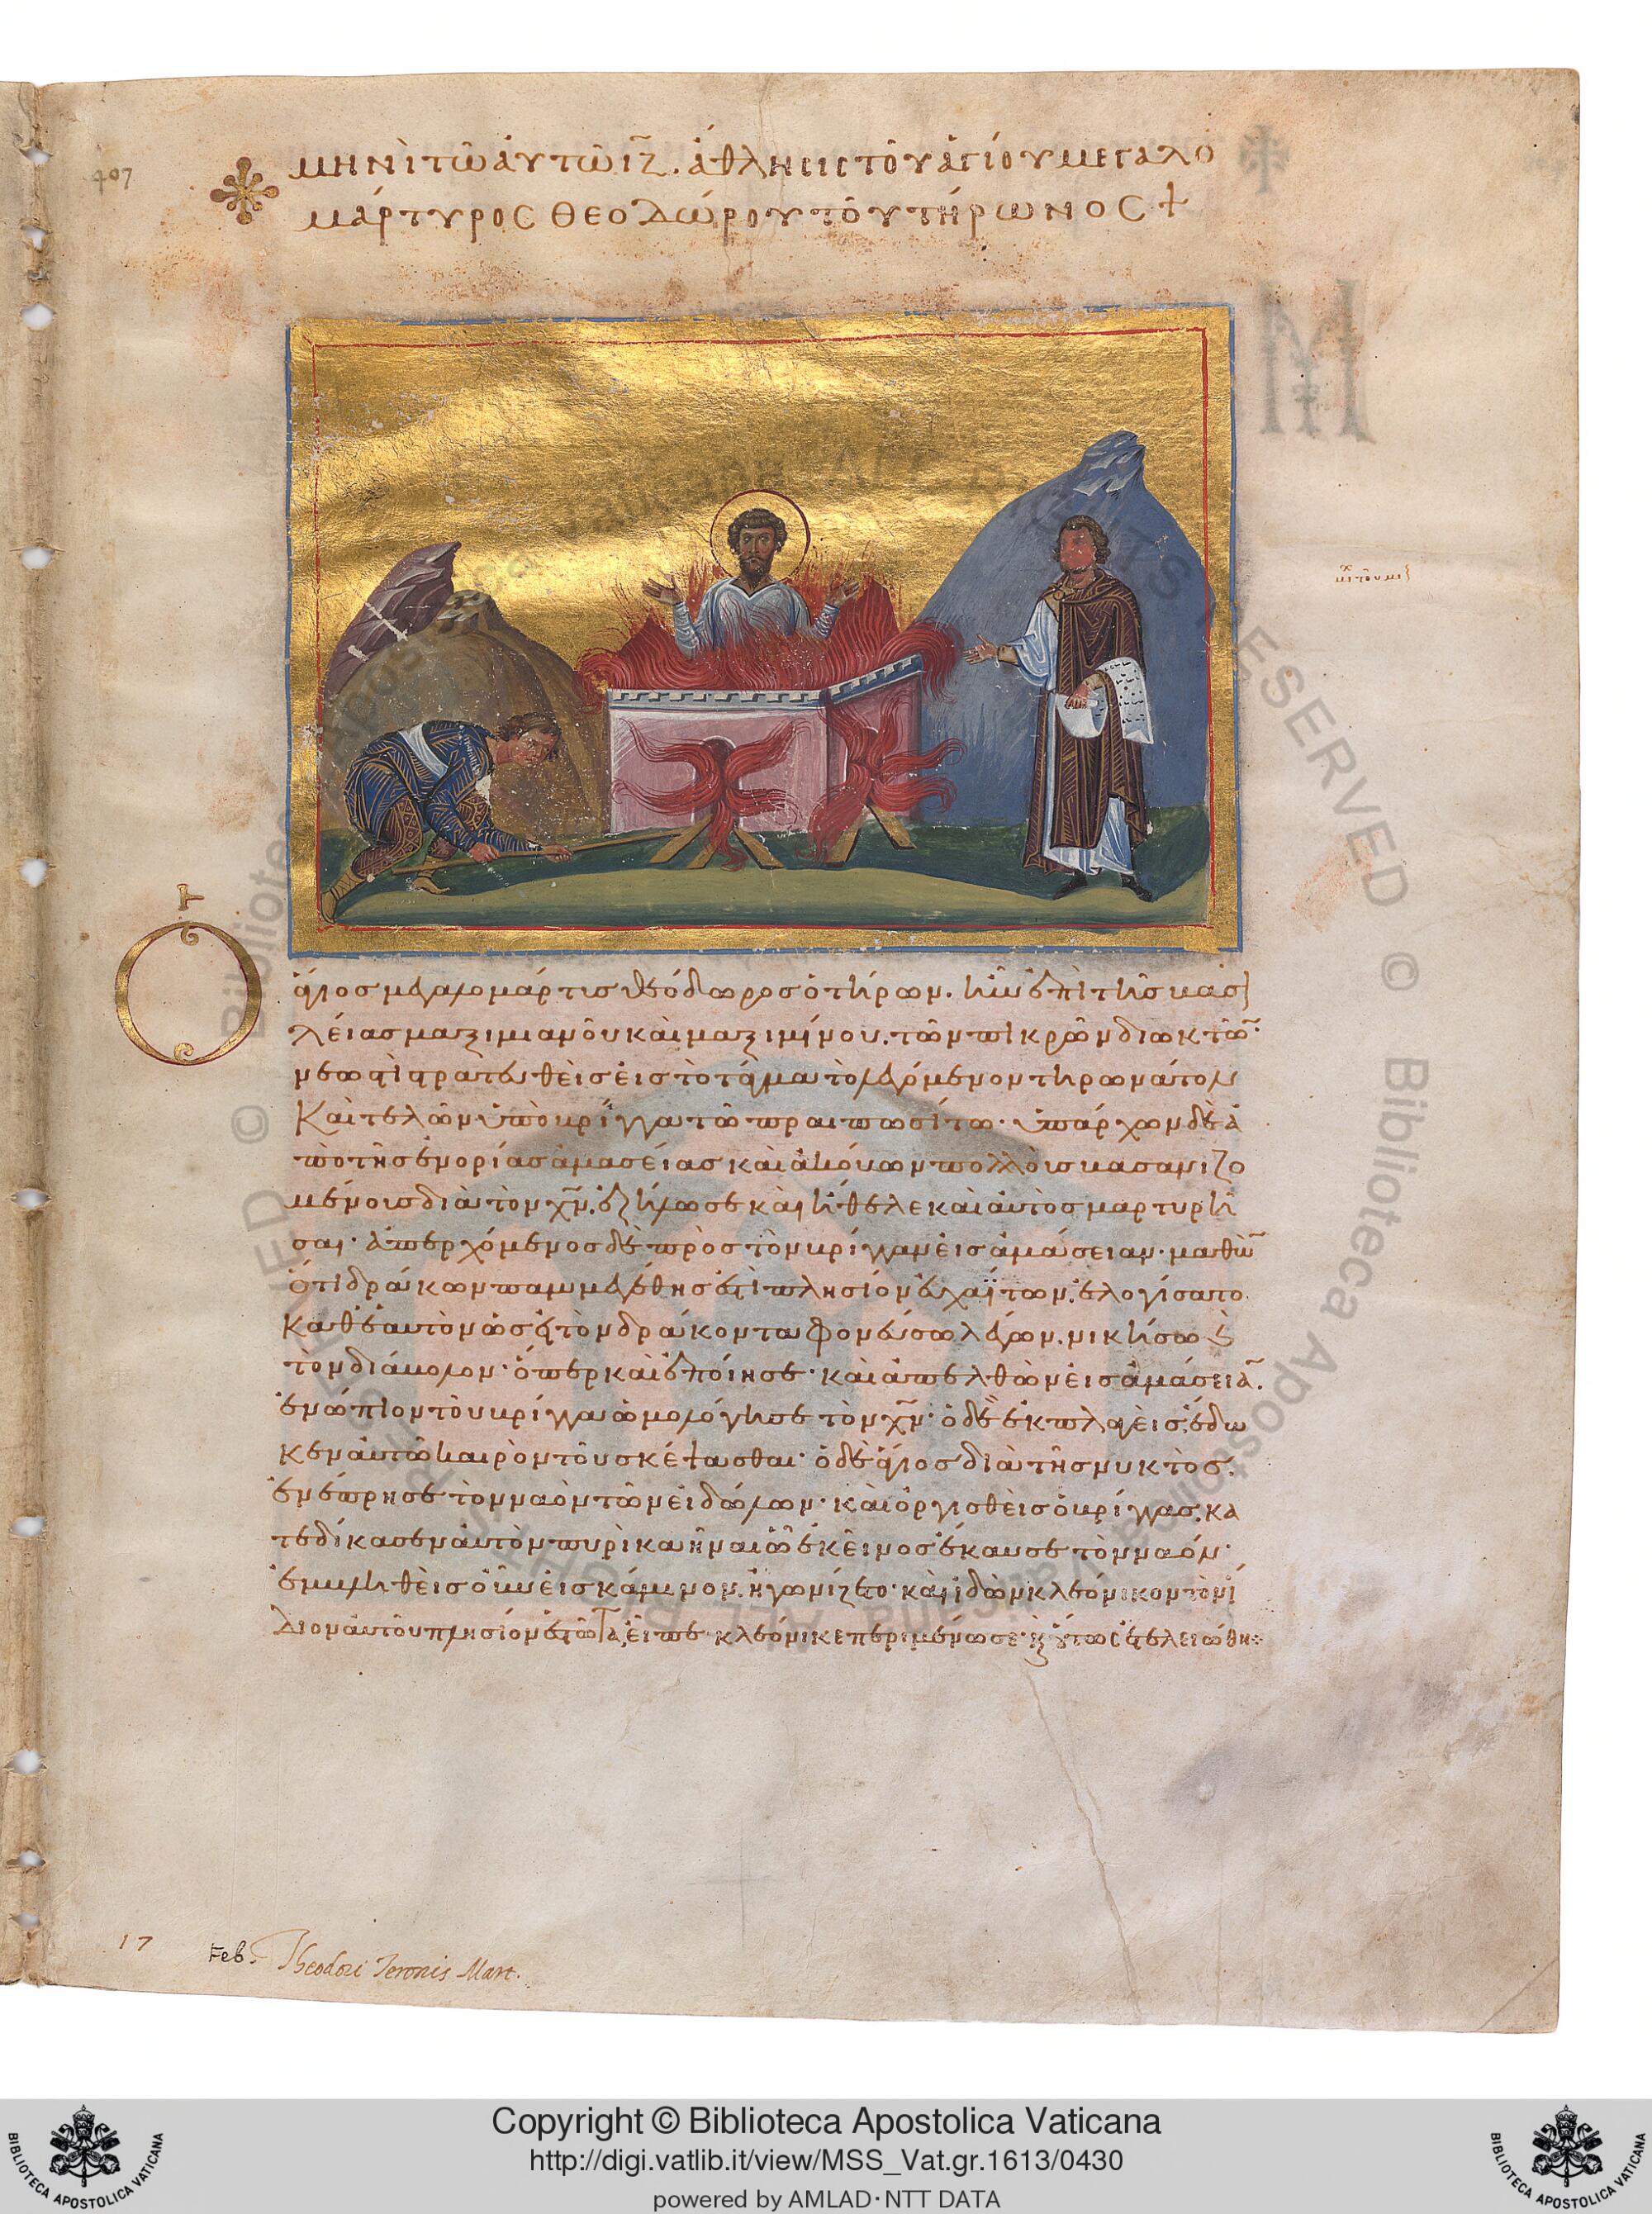 407
μηνὶ τῶ αὐτῶ ιζ. ἄθλησις τοῦ ἁγίου μεγαλο
μάρτυρος θεοδώρου τοῦ τήρωνος
κιτουκι
Ὁ
ἅγιος μεγαλομάρτυς θεόδωρος ὁ τήρων. ἦν ἐπὶ τῆς βασι
λείας μαξιμιανοῦ καὶ μαξιμίνου. τῶν πικρῶν διωκτῶν.
νεωστὶ στρατευθεὶς εἰς τὸ τάγμα τὸ λεγόμενον τηρωνάτον
καὶ τελῶν ὑπὸ βρίγγα τῶ πραιποσίτω. ὑπάρχων δὲ ἀ
πὸ τῆς ἐνορίας ἀμασείας καὶ ἀκούων πολλοὺς βασανιζο
μένους διὰ τὸν χν. ἐζήλωσε καὶ ἤθελε καὶ αὐτὸς μαρτυρῆ
σαι. ἀπερχόμενος δὲ πρὸς τὸν βρίγγαν εἰς ἀμάσειαν. μαθὼν
ὅτι δράκων παμμεγέθης ἐστὶ πλησίον εὐχαΐτων, ἐλογίσατο
καθ ἑαυτὸν ὡς ἐὰν τὸν δράκοντα φονεύσω λέγων. νικήσω καὶ
τὸν διάβολον. ὅπερ καὶ ἐποίησε. καὶ ἀπελθὼν εἰς ἀμάσειαν.
ἐνώπιον τοῦ βρίγγα ὡμολόγησε τὸν χν. ὁ δὲ ἐκπλαγεὶς, ἔδω
κεν αὐτῶ καιρὸν τοῦ σκέψασθαι. ὁ δὲ ἅγιος διὰ τῆς νυκτὸς,
ἐνέπρησε τὸν ναὸν τῶν εἰδώλων. καὶ ὀργισθεὶς ὁ βρίγγας, κα
τεδίκασεν αὐτὸν πυρὶ καῆναι ὡς ἐκεῖνος ἔκαυσε τὸν ναόν.
ἐμβληθεὶς οὖν εἰς κάμινον. ἠγωνίζετο. καὶ ἰδὼν κλεόνικον τὸν ἴ
διον αὐτοῦ πλησίον ἑστῶτα, εἶπε κλεόνικε περιμένω σε. καὶ οὕτως ἐτελειώθη
17
Feb. Theodori Teronis Mart.
Copyright © Biblioteca Apostolica Vaticana
http://digi.vatlib.it/view/MSS_Vat.gr.1613/0430
powered by AMLAD · NTT DATA
BIBLIOTECA APOSTOLICA VATICANA
BIBLIOTECA APOSTOLICA VATICANA